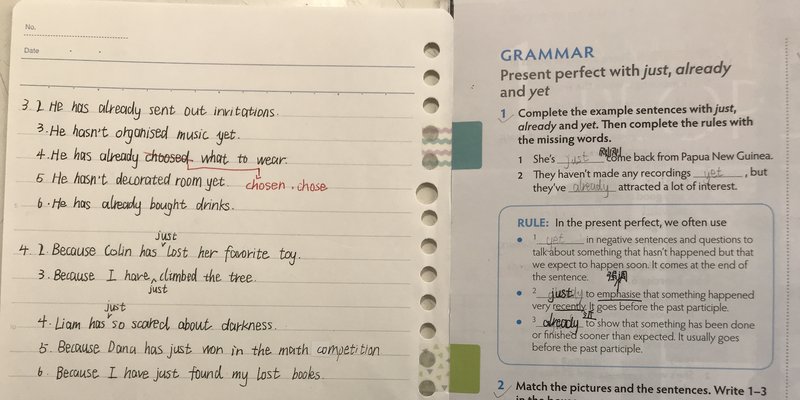 No.
Date
3. 2. He has already sent out invitations.
3. He hasn't organised music yet.
4. He has already choosed what to wear.
5. He hasn't decorated room yet.
chosen . chose
6. He has already bought drinks.
just
4. 2. Because Colin has lost her favorite toy.
3. Because I have climbed the tree.
just
just
4. Liam has so scared about darkness.
5. Because Dana has just won in the math competition
6. Because I have just found my lost books.
GRAMMAR
Present perfect with just, already
and yet
1 Complete the example sentences with just,
already and yet. Then complete the rules with
the missing words.
1 She's just come back from Papua New Guinea.
2 They haven't made any recordings yet, but
they've already attracted a lot of interest.
RULE: In the present perfect, we often use
1 yet in negative sentences and questions to
talk about something that hasn't happened but that
we expect to happen soon. It comes at the end of
the sentence.
2 just to emphasise that something happened
very recently. It goes before the past participle.
3 already to show that something has been done
or finished sooner than expected. It usually goes
before the past participle.
2 Match the pictures and the sentences. Write 1–3